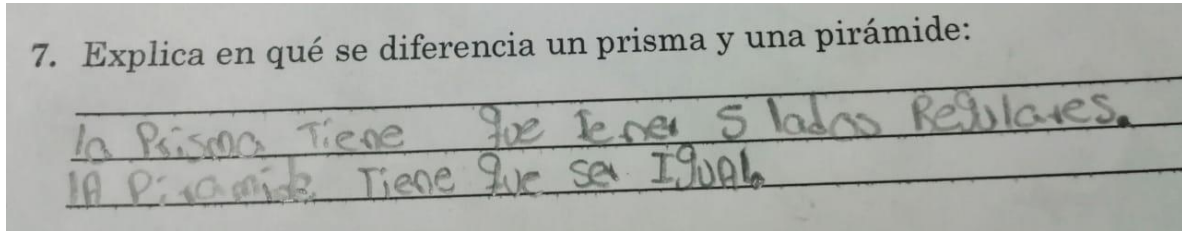 7. Explica en qué se diferencia un prisma y una pirámide:
la Prisma Tiene que tener 5 lados Regulares.
lA Piramide Tiene que ser IguAl.